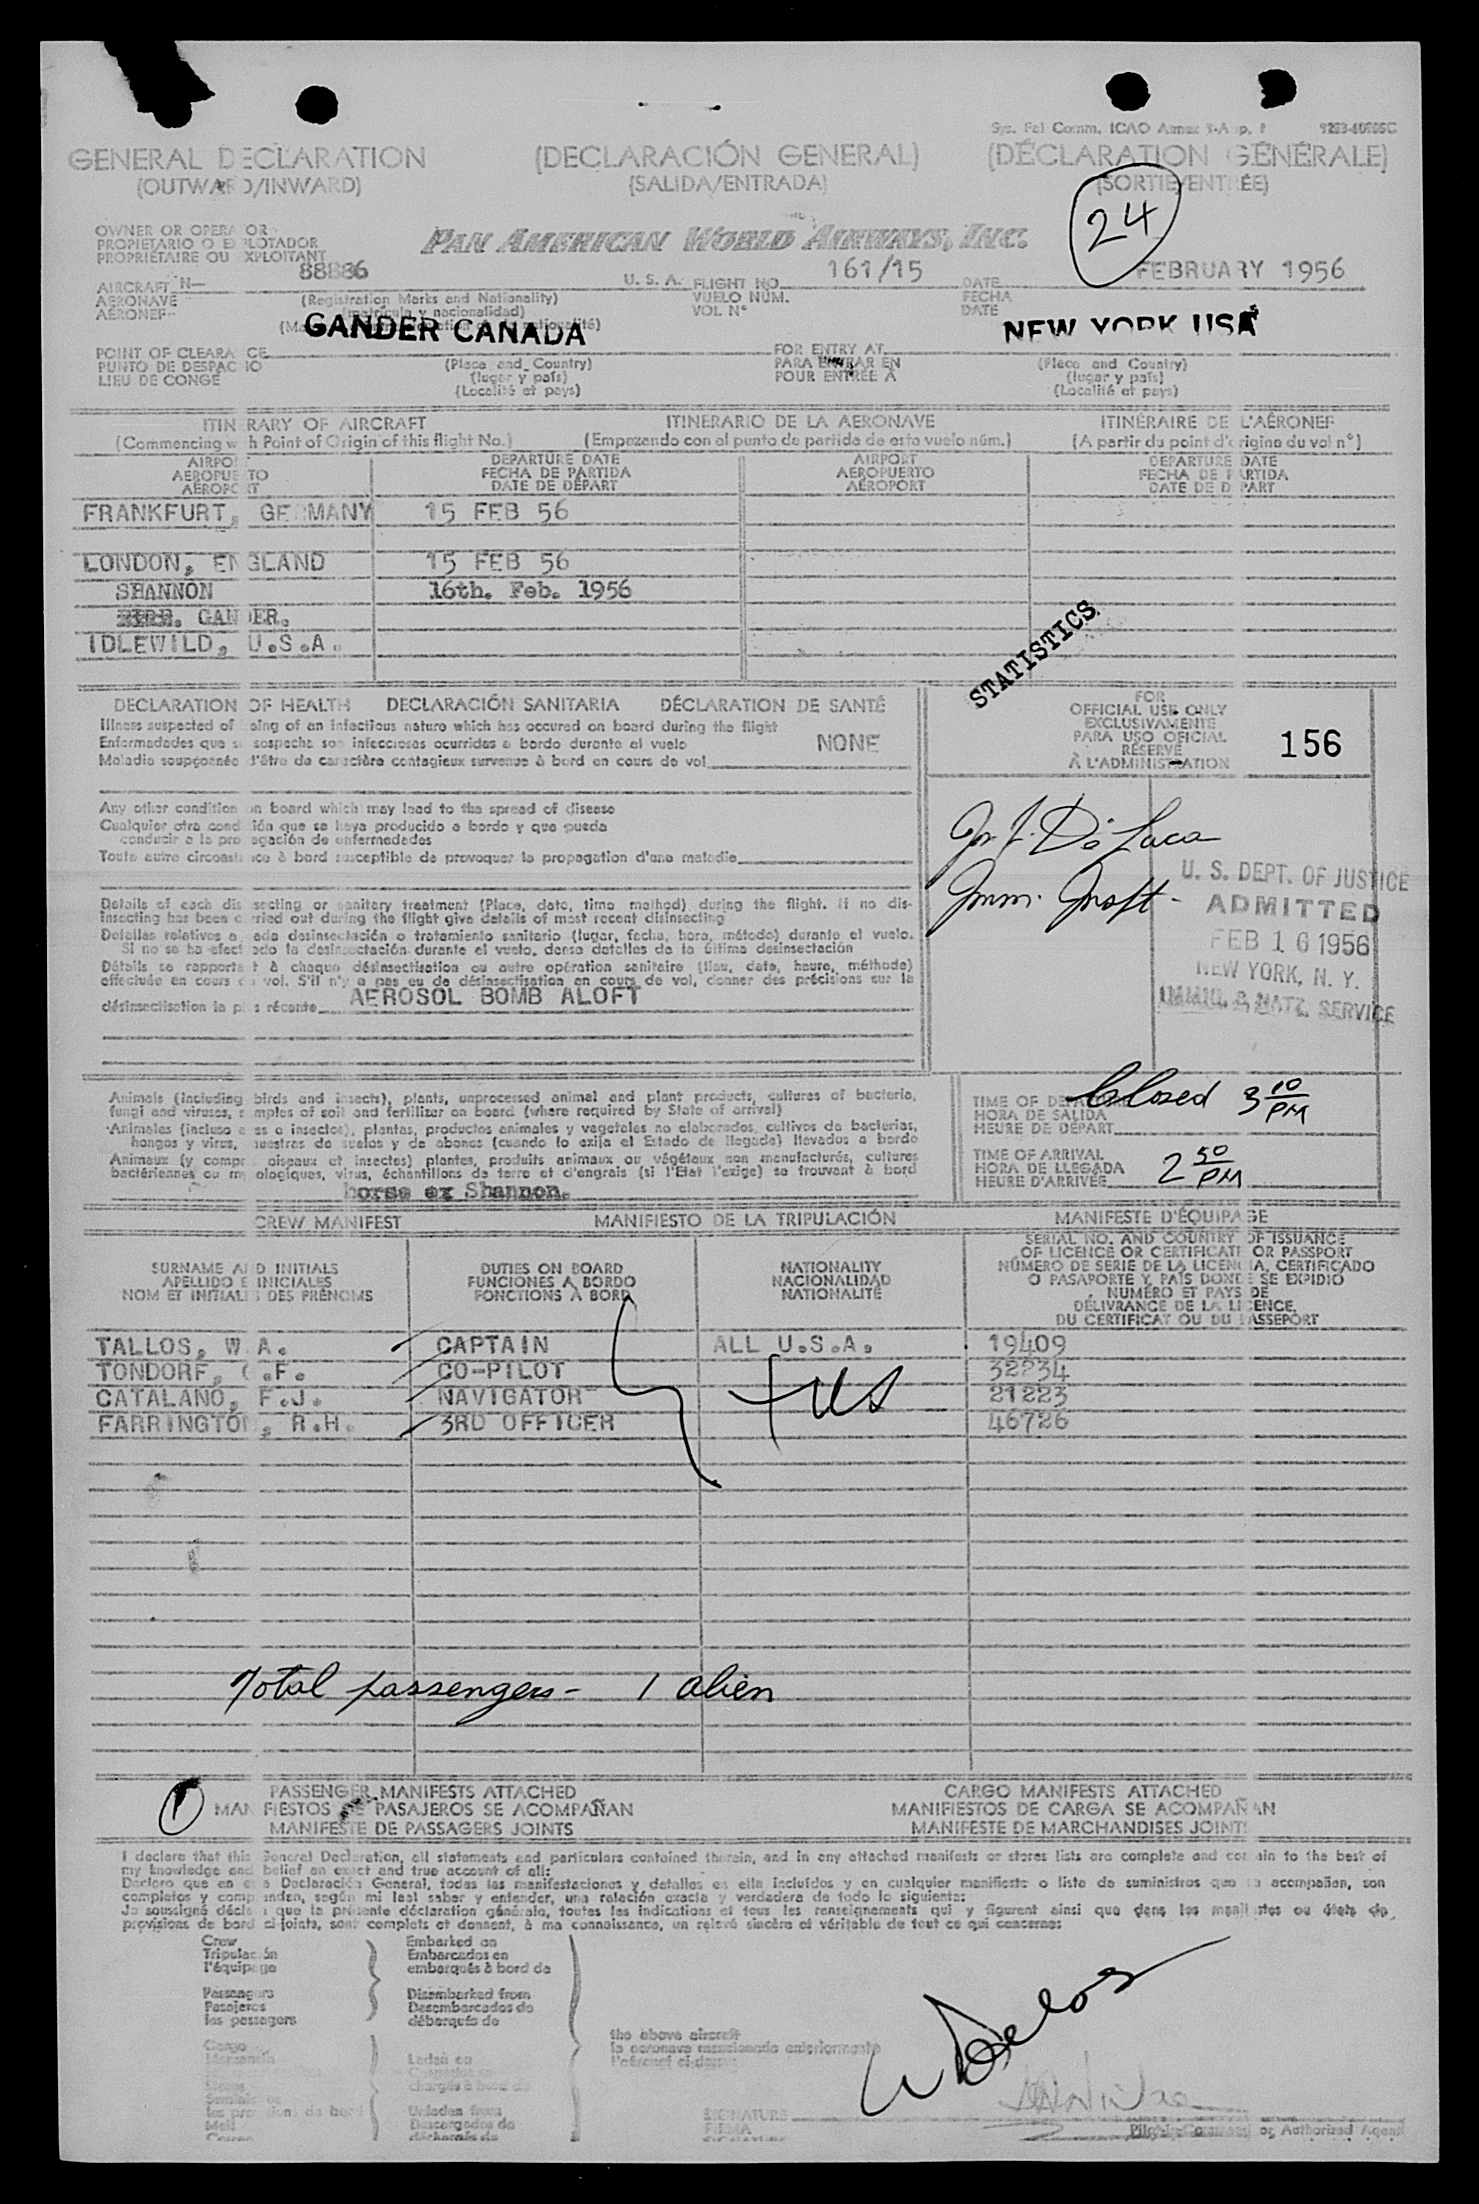 Sys. Fel Comm. ICAO Annex 9-App. 1
GENERAL DECLARATION (DECLARACIÓN GENERAL) (DÉCLARATION GÉNÉRALE)
(OUTWARD/INWARD) (SALIDA/ENTRADA) (SORTIE/ENTRÉE)
24
OWNER OR OPERATOR
PROPIETARIO O EXPLOTADOR
PROPRIÉTAIRE OU EXPLOITANT
PAN AMERICAN WORLD AIRWAYS, INC.
AIRCRAFT N— 88886 U. S. A. FLIGHT NO. 161/15 DATE FEBRUARY 1956
AERONAVE (Registration Marks and Nationality) VUELO NÚM. FECHA
AÉRONEF (matrícula y nacionalidad) VOL N° DATE
GANDER CANADA NEW YORK USA
POINT OF CLEARANCE (Place and Country) FOR ENTRY AT (Place and Country)
PUNTO DE DESPACHO (lugar y país) PARA ENTRAR EN (lugar y país)
LIEU DE CONGÉ (Localité et pays) POUR ENTRÉE À (Localité et pays)
ITINERARY OF AIRCRAFT ITINERARIO DE LA AERONAVE ITINÉRAIRE DE L'AÉRONEF
(Commencing with Point of Origin of this flight No.) (Empezando con el punto de partida de este vuelo núm.) (A partir du point d'origine du vol n°)
AIRPORT DEPARTURE DATE AIRPORT DEPARTURE DATE
AEROPUERTO FECHA DE PARTIDA AEROPUERTO FECHA DE PARTIDA
AÉROPORT DATE DE DÉPART AÉROPORT DATE DE DÉPART
FRANKFURT, GERMANY 15 FEB 56
LONDON, ENGLAND 15 FEB 56
SHANNON 16th. Feb. 1956
GANDER.
IDLEWILD, U.S.A.
STATISTICS
DECLARATION OF HEALTH DECLARACIÓN SANITARIA DÉCLARATION DE SANTÉ
Illness suspected of being of an infectious nature which has occured on board during the flight
Enfermedades que se sospecha son infecciosas ocurridas a bordo durante el vuelo NONE
Maladie soupçonnée d'être de caractère contagieux survenue à bord en cours de vol
FOR
OFFICIAL USE ONLY
EXCLUSIVAMENTE
PARA USO OFICIAL
RÉSERVÉ
À L'ADMINISTRATION
156
Any other condition on board which may lead to the spread of disease
Cualquier otra condición que se haya producido a bordo y que pueda
conducir a la propagación de enfermedades
Toute autre circonstance à bord susceptible de provoquer la propagation d'une maladie
Di Luca
U. S. DEPT. OF JUSTICE
ADMITTED
FEB 16 1956
NEW YORK, N. Y.
IMMIG. & NATZ. SERVICE
Details of each disinsecting or sanitary treatment (Place, date, time method) during the flight. If no dis-
insecting has been carried out during the flight give details of most recent disinsecting
Detalles relativos a cada desinsectación o tratamiento sanitario (lugar, fecha, hora, método) durante el vuelo.
Si no se ha efectuado la desinsectación durante el vuelo, dense detalles de la última desinsectación
Détails se rapportant à chaque désinsectisation ou autre opération sanitaire (lieu, date, heure, méthode)
effectuée en cours de vol. S'il n'y a pas eu de désinsectisation en cours de vol, donner des précisions sur la
désinsectisation la plus récente AEROSOL BOMB ALOFT
Animals (including birds and insects), plants, unprocessed animal and plant products, cultures of bacteria,
fungi and viruses, samples of soil and fertilizer on board (where required by State of arrival)
Animales (incluso aves o insectos), plantas, productos animales y vegetales no elaborados, cultivos de bacterias,
hongos y virus, muestras de suelos y de abonos (cuando lo exija el Estado de llegada) llevados a bordo
Animaux (y compris oiseaux et insectes) plantes, produits animaux ou végétaux non manufacturés, cultures
bactériennes ou mycologiques, virus, échantillons de terre et d'engrais (si l'Etat l'exige) se trouvant à bord
horse ex Shannon.
TIME OF DEPARTURE Closed 3 10 PM
HORA DE SALIDA
HEURE DE DÉPART
TIME OF ARRIVAL
HORA DE LLEGADA 2 50 PM
HEURE D'ARRIVÉE
CREW MANIFEST MANIFIESTO DE LA TRIPULACIÓN MANIFESTE D'ÉQUIPAGE
SURNAME AND INITIALS DUTIES ON BOARD NATIONALITY
APELLIDO E INICIALES FUNCIONES A BORDO NACIONALIDAD
NOM ET INITIALES DES PRÉNOMS FONCTIONS À BORD NATIONALITÉ
SERIAL NO. AND COUNTRY OF ISSUANCE
OF LICENCE OR CERTIFICATE OR PASSPORT
NÚMERO DE SERIE DE LA LICENCIA, CERTIFICADO
O PASAPORTE Y PAÍS DONDE SE EXPIDIÓ
NUMÉRO ET PAYS DE
DÉLIVRANCE DE LA LICENCE,
DU CERTIFICAT OU DU PASSEPORT
TALLOS, W.A. CAPTAIN ALL U.S.A. 19409
TONDORF, .F. CO-PILOT 32234
CATALANO, F.J. NAVIGATOR 21223
FARRINGTON, R.H. 3RD OFFICER 46726
Total passengers - 1 alien
1
PASSENGER MANIFESTS ATTACHED CARGO MANIFESTS ATTACHED
MANIFIESTOS DE PASAJEROS SE ACOMPAÑAN MANIFIESTOS DE CARGA SE ACOMPAÑAN
MANIFESTE DE PASSAGERS JOINTS MANIFESTE DE MARCHANDISES JOINTS
I declare that this General Declaration, all statements and particulars contained therein, and in any attached manifests or stores lists are complete and contain to the best of
my knowledge and belief an exact and true account of all:
Declaro que en esta Declaración General, todas las manifestaciones y detalles en ella incluídos y en cualquier manifiesto o lista de suministros que la acompañan, son
completos y comprenden, según mi leal saber y entender, una relación exacta y verdadera de todo lo siguiente:
Je soussigné déclare que la présente déclaration générale, toutes les indications et tous les renseignements qui y figurent ainsi que dans les manifestes ou états de
provisions de bord ci-joints, sont complets et donnent, à ma connaissance, un relevé sincère et véritable de tout ce qui concerne:
Crew Embarked on
Tripulación Embarcados en
l'équipage embarqués à bord de
Passengers Disembarked from
Pasajeros Desembarcados de
les passagers débarqués de
the above aircraft
la aeronave mencionada anteriormente
Cargo
Laden on
Unladen from
Descargados de
SIGNATURE
FIRMA
or Authorized Agent